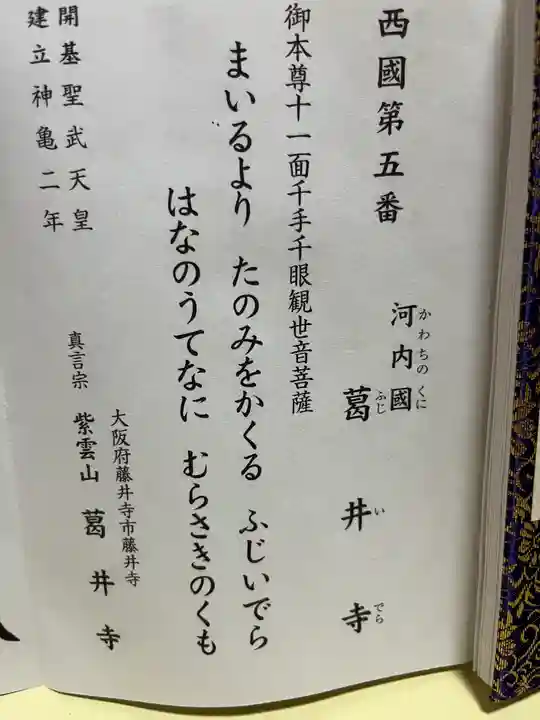 西國第五番
河内國 葛井寺
かわちの くに ふじ い でら
御本尊十一面千手千眼観世音菩薩
まいるより たのみをかくる ふじいでら
はなのうてなに むらさきのくも
開基聖武天皇
建立神亀二年
大阪府藤井寺市藤井寺
真言宗 紫雲山 葛井寺